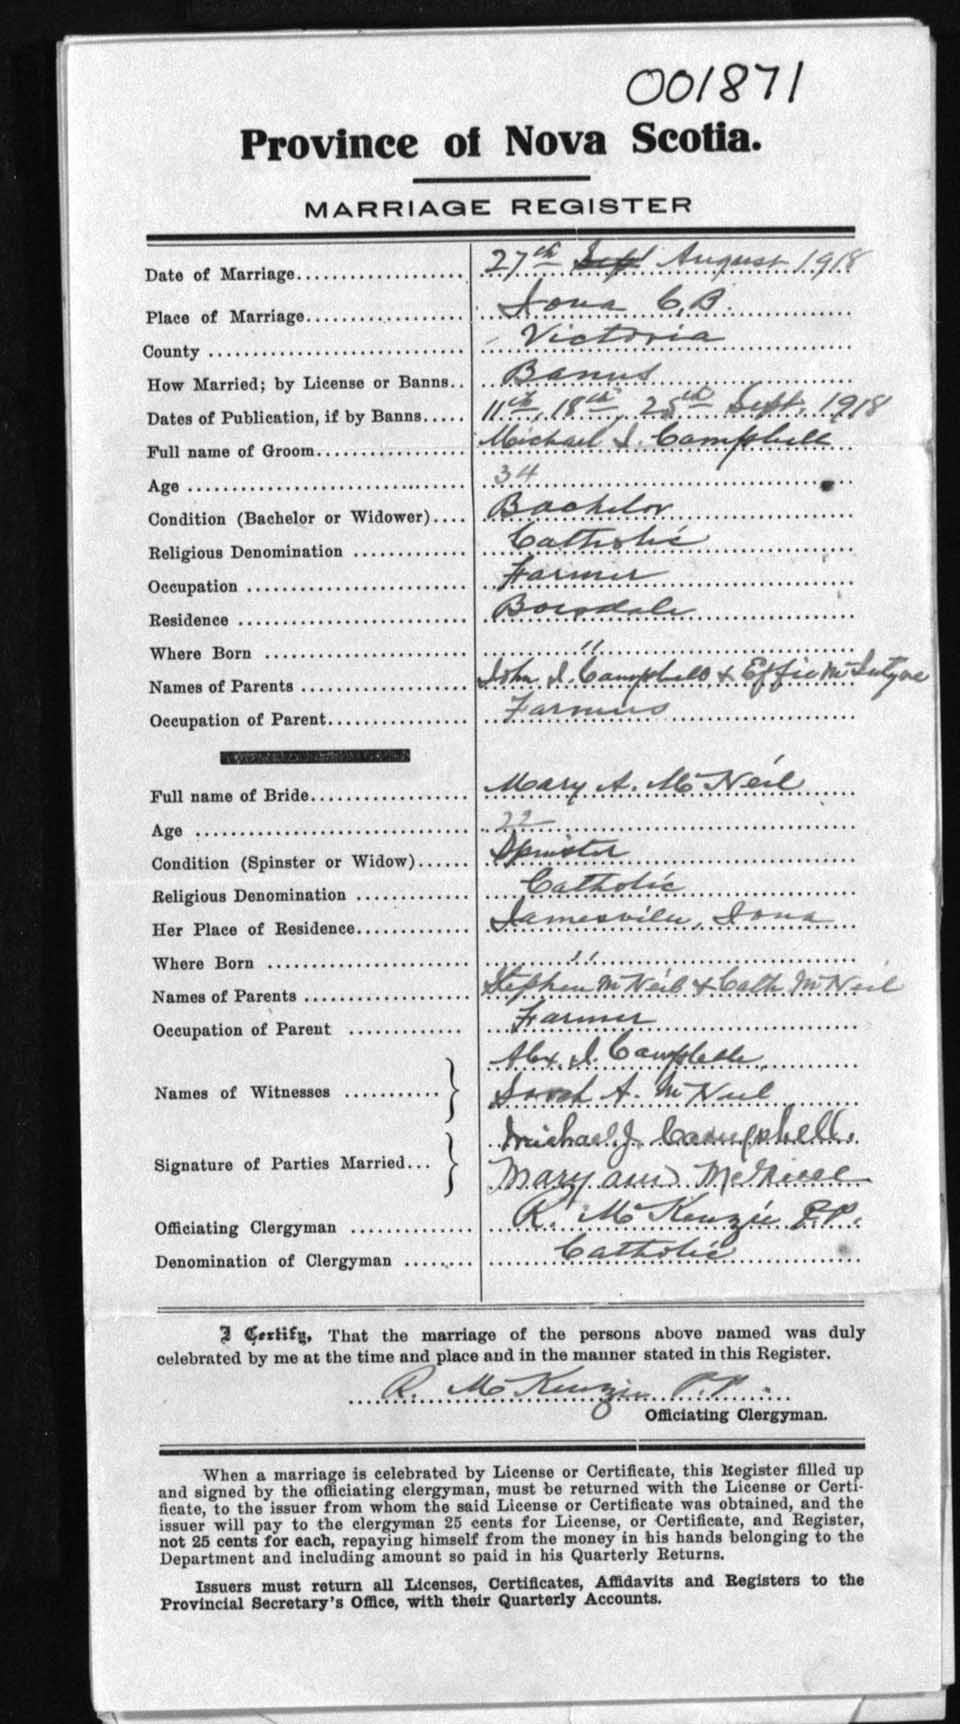 001871
Province of Nova Scotia.
MARRIAGE REGISTER
Date of Marriage................... 27th Sept August 1918
Place of Marriage.................. Iona C.B.
County ............................. Victoria
How Married; by License or Banns.. Banns
Dates of Publication, if by Banns..... 11th, 18th, 25th Sept. 1918
Full name of Groom................. Michael J. Campbell
Age ................................ 34
Condition (Bachelor or Widower).... Bachelor
Religious Denomination ............. Catholic
Occupation ......................... Farmer
Residence .......................... Boisdale
Where Born ........................ "
Names of Parents ................... John J. Campbell & Effie McIntyre
Occupation of Parent................ Farmers
Full name of Bride.................. Mary A. McNeil
Age ................................ 22
Condition (Spinster or Widow)...... Spinster
Religious Denomination ............. Catholic
Her Place of Residence............. Jamesville, Iona
Where Born ........................ "
Names of Parents ................... Stephen McNeil & Cath McNeil
Occupation of Parent ............. Farmer
Alex. J. Campbell
Names of Witnesses ........... } Sarah A. McNeil
Michael J. Campbell.
Signature of Parties Married... } Mary Ann McNeil
Officiating Clergyman .............. R. McKenzie P.P.
Denomination of Clergyman ........ Catholic
I Certify, That the marriage of the persons above named was duly
celebrated by me at the time and place and in the manner stated in this Register.
R. McKenzie P.P.
Officiating Clergyman.
When a marriage is celebrated by License or Certificate, this Register filled up
and signed by the officiating clergyman, must be returned with the License or Certi-
ficate, to the issuer from whom the said License or Certificate was obtained, and the
issuer will pay to the clergyman 25 cents for License, or Certificate, and Register,
not 25 cents for each, repaying himself from the money in his hands belonging to the
Department and including amount so paid in his Quarterly Returns.
Issuers must return all Licenses, Certificates, Affidavits and Registers to the
Provincial Secretary's Office, with their Quarterly Accounts.